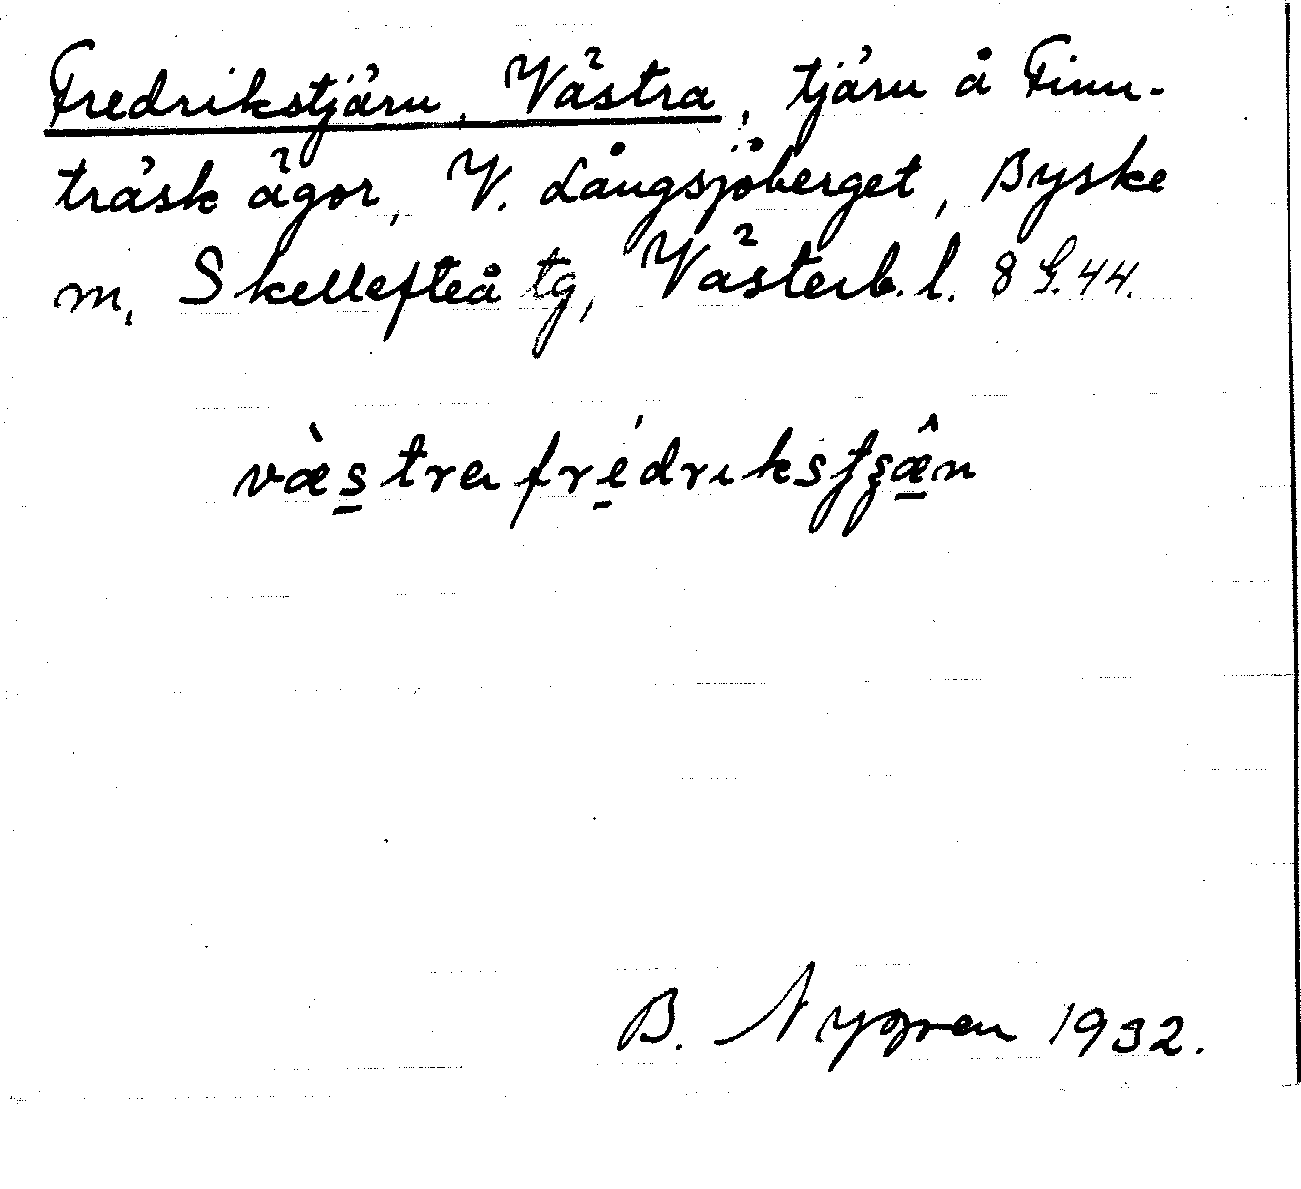 Fredrikstjärn, Västra, tjärn å Finn-
träsk ägor, V. Långsjöberget, Byske
m, Skellefteå tg, Västerb. l. 8 G. 44.
væ̀s̲tra fré̲drikstʂæ̲̂n
B. Nygren 1932.